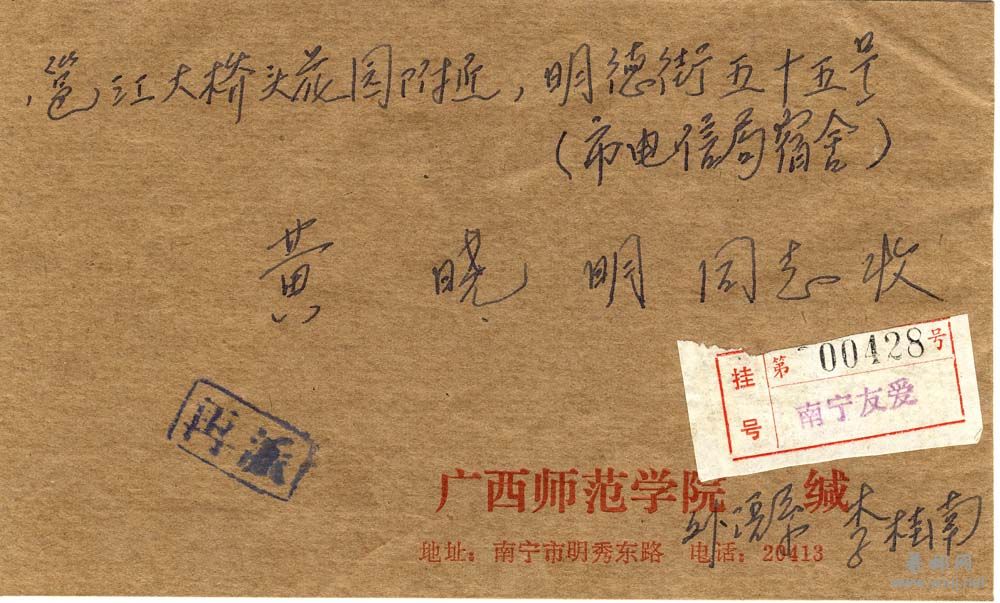 邕江大桥头花园附近，明德街五十五号
（市电信局宿舍）
黄晓明同志收
挂号
第00428号
南宁友爱
再派
广西师范学院 缄
外语系 李桂南
地址：南宁市明秀东路 电话：20413